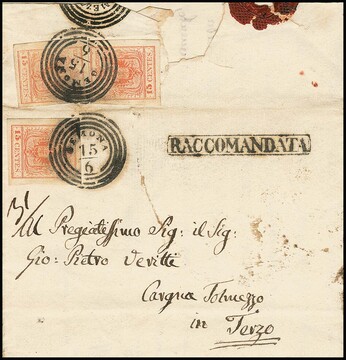 15 CENTES.
15 CENTES.
GEMONA
15
6
15 CENTES.
GEMONA
15
6
RACCOMANDATA
Al Pregiatissimo Sig: il Sig:
Gio: Pietro Devitti
Cargna Tolmezzo
in Terzo